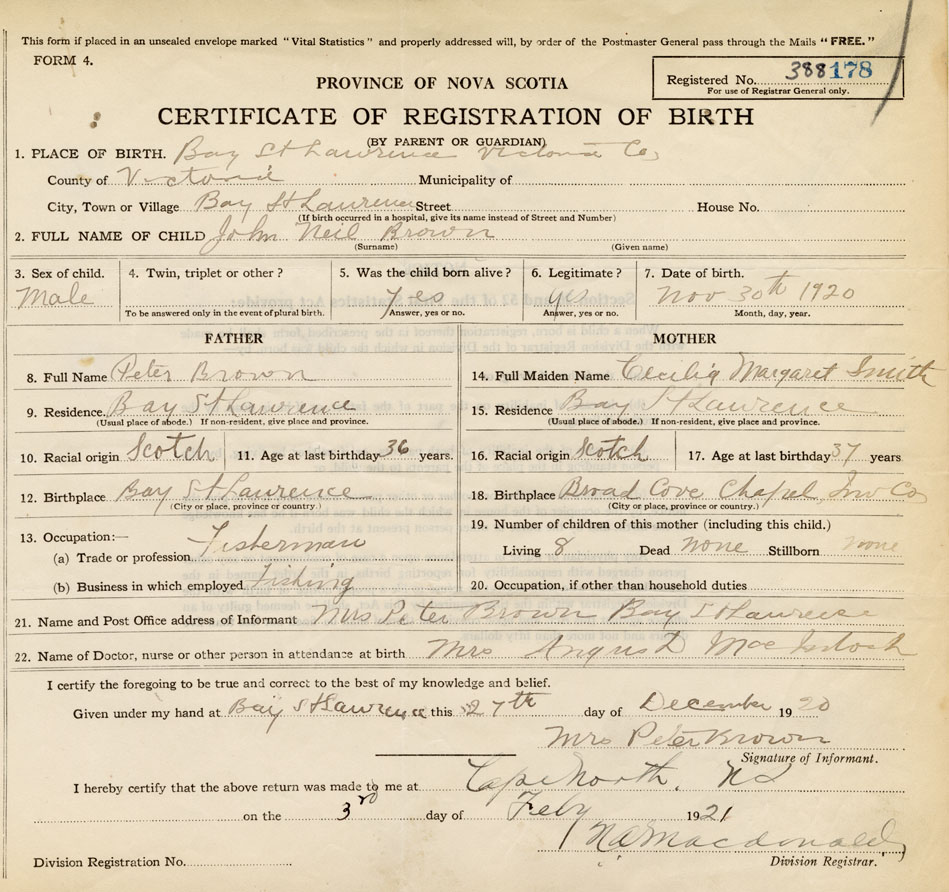 This form if placed in an unsealed envelope marked "Vital Statistics" and properly addressed will, by order of the Postmaster General pass through the Mails "FREE."
FORM 4.
PROVINCE OF NOVA SCOTIA
Registered No. 388178
For use of Registrar General only.
CERTIFICATE OF REGISTRATION OF BIRTH
(BY PARENT OR GUARDIAN)
1. PLACE OF BIRTH. Bay St Lawrence Victoria Co,
County of Victoria Municipality of
City, Town or Village Bay St Lawrence Street House No.
(If birth occurred in a hospital, give its name instead of Street and Number)
2. FULL NAME OF CHILD John Neil Brown
(Surname) (Given name)
3. Sex of child. 4. Twin, triplet or other? 5. Was the child born alive? 6. Legitimate? 7. Date of birth.
Male Yes yes Nov 30th 1920
To be answered only in the event of plural birth. Answer, yes or no. Answer, yes or no. Month, day, year.
FATHER MOTHER
8. Full Name Peter Brown 14. Full Maiden Name Cecilia Margaret Smith
9. Residence. Bay St Lawrence 15. Residence Bay St Lawrence
(Usual place of abode.) If non-resident, give place and province. (Usual place of abode.) If non-resident, give place and province.
10. Racial origin Scotch 11. Age at last birthday 36 years. 16. Racial origin Scotch 17. Age at last birthday 37 years
12. Birthplace Bay St Lawrence 18. Birthplace Broad Cove Chapel, Inv Co,
(City or place, province or country.) (City or place, province or country.)
13. Occupation:— 19. Number of children of this mother (including this child.)
(a) Trade or profession Fisherman Living 8 Dead none Stillborn none
(b) Business in which employed Fishing 20. Occupation, if other than household duties
21. Name and Post Office address of Informant Mrs Peter Brown Bay St Lawrence
22. Name of Doctor, nurse or other person in attendance at birth Mrs Mac
I certify the foregoing to be true and correct to the best of my knowledge and belief.
Given under my hand at Bay St Lawrence this 27th day of December 1920
Mrs Peter Brown
Signature of Informant.
I hereby certify that the above return was made to me at Cape North, NS
on the 3rd day of Feby 1921
Macdonald
Division Registration No. Division Registrar.